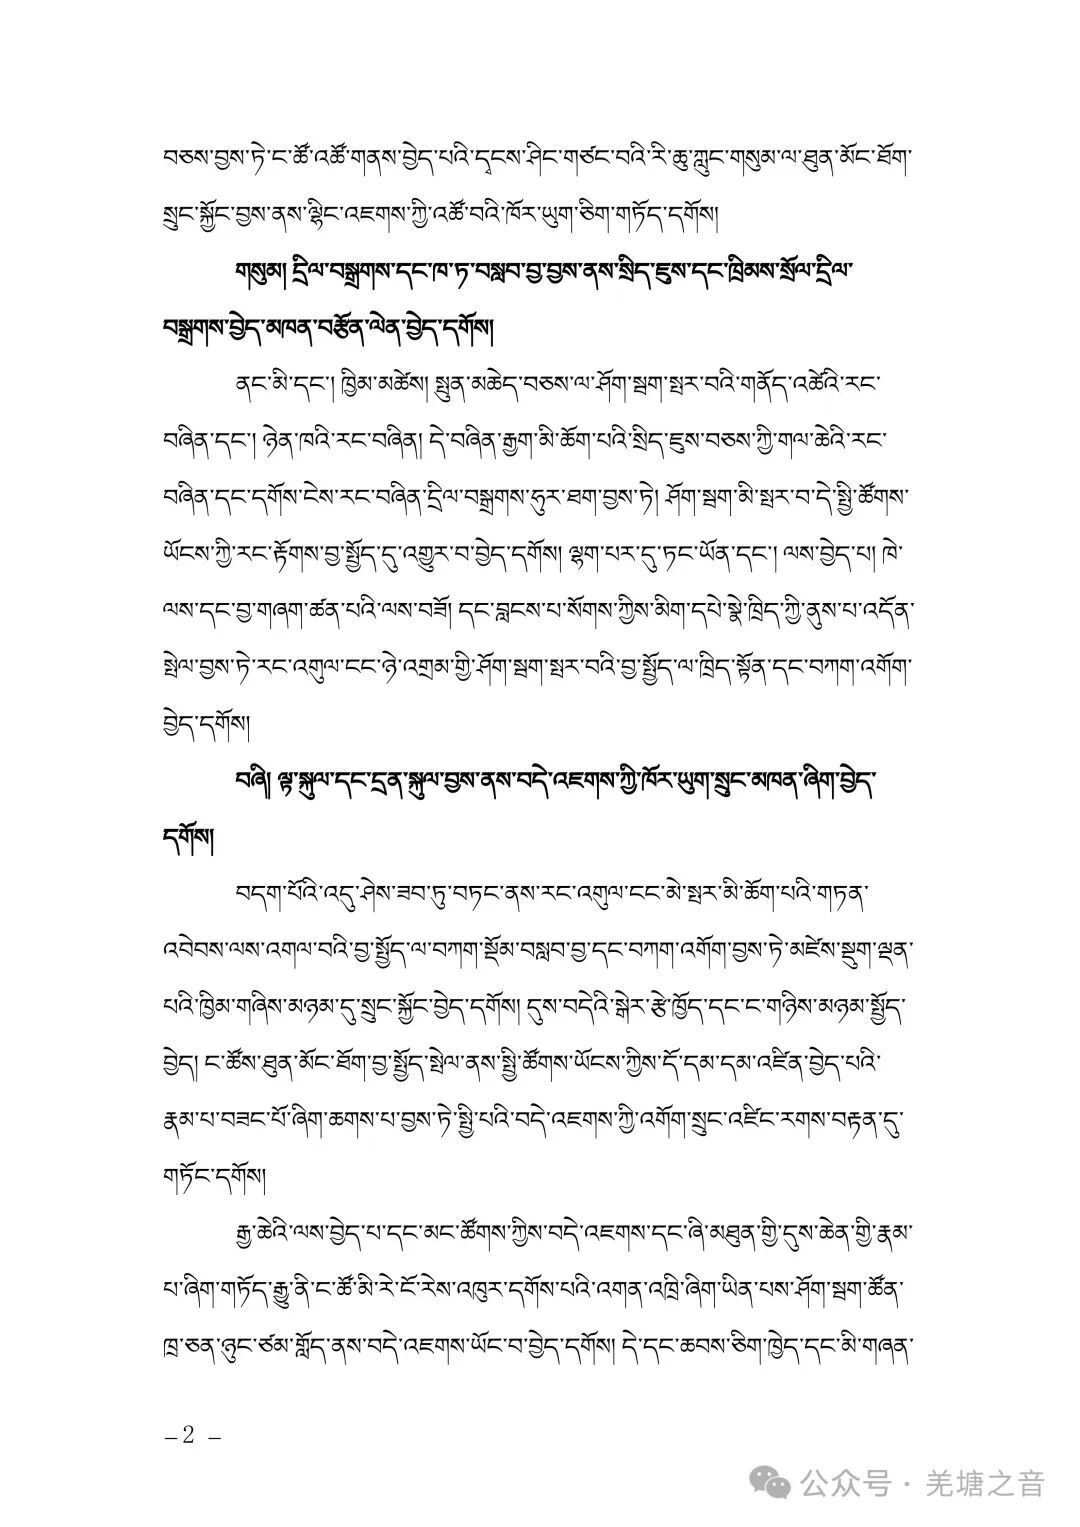 བཅས་བྱས་ཏེ་ང་ཚོ་འཚོ་གནས་བྱེད་པའི་དྭངས་ཤིང་གཙང་བའི་རི་ཆུ་ཀླུང་གསུམ་ལ་ཐུན་མོང་ཐོག་
སྲུང་སྐྱོང་བྱས་ནས་ལྷིང་འཇགས་ཀྱི་འཚོ་བའི་ཁོར་ཡུག་ཅིག་གཏོད་དགོས།
གསུམ། དྲིལ་བསྒྲགས་དང་ཁ་ཏ་བསླབ་བྱ་བྱས་ནས་སྲིད་ཇུས་དང་ཁྲིམས་སྲོལ་དྲིལ་
བསྒྲགས་བྱེད་མཁན་བརྩོན་ལེན་བྱེད་དགོས།
ནང་མི་དང་། ཁྱིམ་མཚེས། སྤུན་མཆེད་བཅས་ལ་ཤོག་སྦག་སྤར་བའི་གནོད་འཚེའི་རང་
བཞིན་དང་། ཉེན་ཁའི་རང་བཞིན། དེ་བཞིན་རྒྱག་མི་ཆོག་པའི་སྲིད་ཇུས་བཅས་ཀྱི་གལ་ཆེའི་རང་
བཞིན་དང་དགོས་ངེས་རང་བཞིན་དྲིལ་བསྒྲགས་ཧུར་ཐག་བྱས་ཏེ། ཤོག་སྦག་མི་སྤར་བ་དེ་སྤྱི་ཚོགས་
ཡོངས་ཀྱི་རང་རྟོགས་བྱ་སྤྱོད་དུ་འགྱུར་བ་བྱེད་དགོས། ལྷག་པར་དུ་ཏང་ཡོན་དང་། ལས་བྱེད་པ། ཁེ་
ལས་དང་བྱ་གཞག་ཚན་པའི་ལས་བཟོ། དང་བླངས་པ་སོགས་ཀྱིས་མིག་དཔེ་སྣེ་ཁྲིད་ཀྱི་ནུས་པ་འདོན་
སྤེལ་བྱས་ཏེ་རང་འགུལ་ངང་ཉེ་འགྲམ་གྱི་ཤོག་སྦག་སྤར་བའི་བྱ་སྤྱོད་ལ་ཁྲིད་སྟོན་དང་བཀག་འགོག་
བྱེད་དགོས།
བཞི། ལྟ་སྐུལ་དང་དྲན་སྐུལ་བྱས་ནས་བདེ་འཇགས་ཀྱི་ཁོར་ཡུག་སྲུང་མཁན་ཞིག་བྱེད་
དགོས།
བདག་པོའི་འདུ་ཤེས་ཟབ་ཏུ་བཏང་ནས་རང་འགུལ་ངང་མེ་སྤར་མི་ཆོག་པའི་གཏན་
འབེབས་ལས་འགལ་བའི་བྱ་སྤྱོད་ལ་བཀག་སྡོམ་བསླབ་བྱ་དང་བཀག་འགོག་བྱས་ཏེ་མཛེས་སྡུག་ལྡན་
པའི་ཁྱིམ་གཞིས་མཉམ་དུ་སྲུང་སྐྱོང་བྱེད་དགོས། དུས་བདེའི་སྒེར་རྩེ་ཁྱོད་དང་ང་གཉིས་མཉམ་སྤྱོད་
བྱེད། ང་ཚོས་ཐུན་མོང་ཐོག་བྱ་སྤྱོད་སྤེལ་ནས་སྤྱི་ཚོགས་ཡོངས་ཀྱིས་དོ་དམ་དམ་འཛིན་བྱེད་པའི་
རྣམ་པ་བཟང་པོ་ཞིག་ཆགས་པ་བྱས་ཏེ་སྤྱི་པའི་བདེ་འཇགས་ཀྱི་འགོག་སྲུང་འཛིང་རགས་བརྟན་དུ་
གཏོང་དགོས།
རྒྱ་ཆེའི་ལས་བྱེད་པ་དང་མང་ཚོགས་ཀྱིས་བདེ་འཇགས་དང་ཞི་མཐུན་གྱི་དུས་ཆེན་གྱི་རྣམ་
པ་ཞིག་གཏོད་རྒྱུ་ནི་ང་ཚོ་མི་རེ་ངོ་རེས་འཁུར་དགོས་པའི་འགན་འཁྲི་ཞིག་ཡིན་པས་ཤོག་སྦག་ཚོན་
ཁྲ་ཅན་ཉུང་ཙམ་གློད་ནས་བདེ་འཇགས་ཡོང་བ་བྱེད་དགོས། དེ་དང་ཆབས་ཅིག་ཁྱེད་དང་མི་གཞན་
– 2 –
公众号 · 羌塘之音